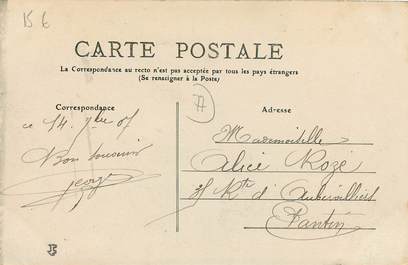 15 €
CARTE POSTALE
La Correspondance au recto n'est pas acceptée par tous les pays étrangers
(Se renseigner à la Poste)
77
Correspondance
Adresse
ce 14. 7bre 07
Bon souvenir
Georges
Mademoiselle
Alice Rozé
Rte d'Aubervilliers
Pantin